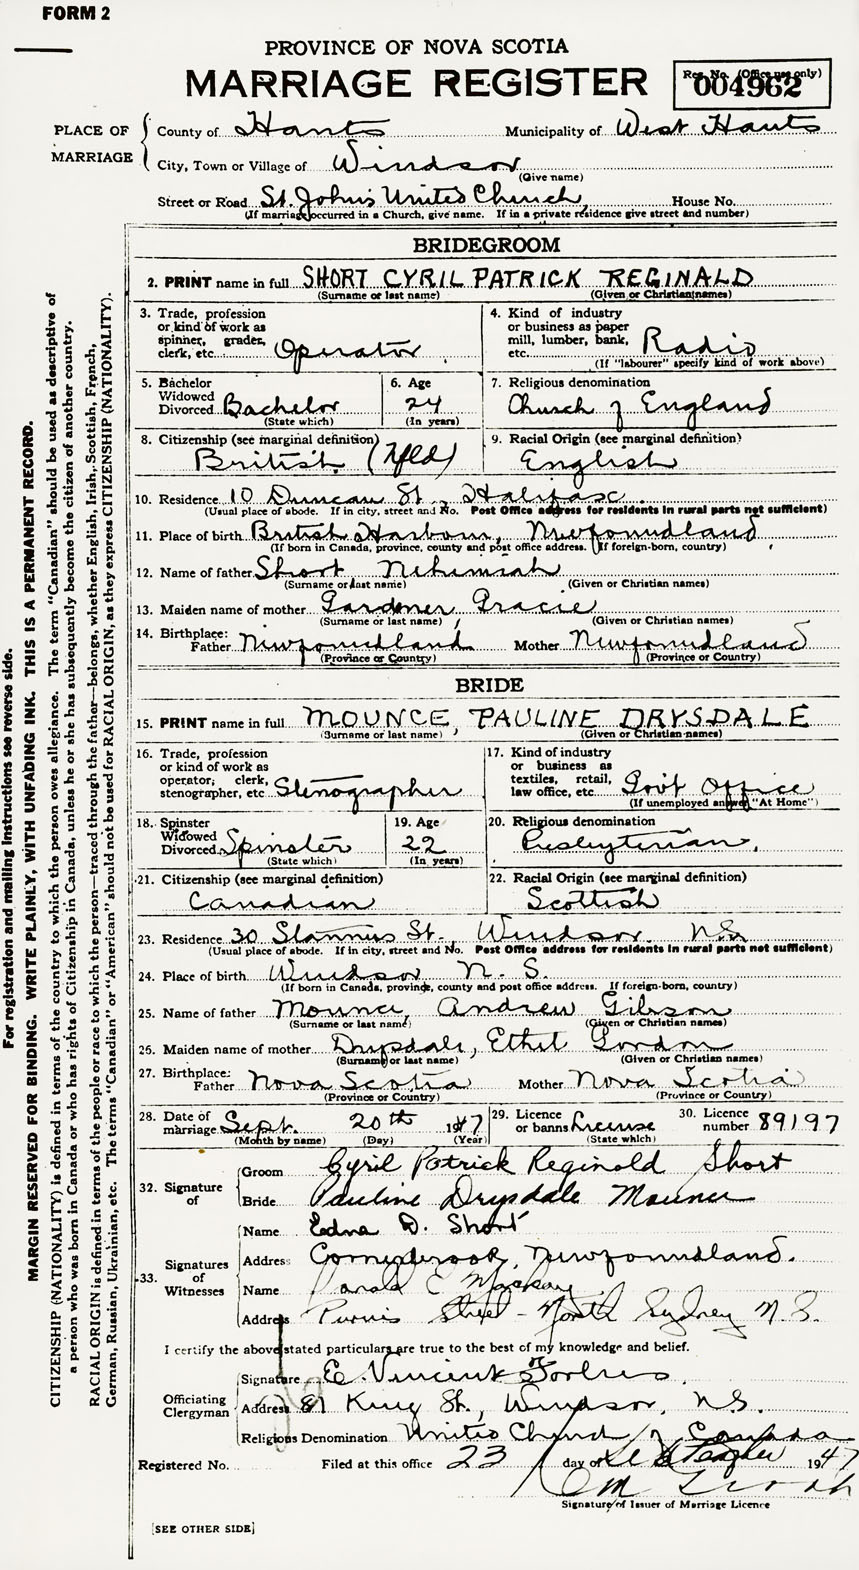 FORM 2
PROVINCE OF NOVA SCOTIA
MARRIAGE REGISTER
Reg. No. (Office use only)
004962
PLACE OF MARRIAGE
County of Hants Municipality of West Hants
City, Town or Village of Windsor
(Give name)
Street or Road St. John's United Church, House No.
(If marriage occurred in a Church, give name. If in a private residence give street and number)
BRIDEGROOM
2. PRINT name in full SHORT CYRIL PATRICK REGINALD
(Surname or last name) (Given or Christian names)
3. Trade, profession or kind of work as spinner, grader, clerk, etc. Operator
4. Kind of industry or business as paper mill, lumber, bank, etc. Radio
(If "labourer" specify kind of work above)
5. Bachelor Widowed Divorced Bachelor
(State which)
6. Age 24
(In years)
7. Religious denomination Church of England
8. Citizenship (see marginal definition) British (Nfld)
9. Racial Origin (see marginal definition) English
10. Residence 10 Duncan St., Halifax.
(Usual place of abode. If in city, street and No. Post Office address for residents in rural parts not sufficient)
11. Place of birth British Harbour, Newfoundland
(If born in Canada, province, county and post office address. If foreign-born, country)
12. Name of father Short, Nehemiah
(Surname or last name) (Given or Christian names)
13. Maiden name of mother Gardner, Gracie
(Surname or last name) (Given or Christian names)
14. Birthplace: Father Newfoundland Mother Newfoundland
(Province or Country) (Province or Country)
BRIDE
15. PRINT name in full MOUNCE, PAULINE DRYSDALE
(Surname or last name) (Given or Christian names)
16. Trade, profession or kind of work as operator, clerk, stenographer, etc Stenographer
17. Kind of industry or business as textiles, retail, law office, etc. Gov't Office
(If unemployed answer "At Home")
18. Spinster Widowed Divorced Spinster
(State which)
19. Age 22
(In years)
20. Religious denomination Presbyterian.
21. Citizenship (see marginal definition) Canadian
22. Racial Origin (see marginal definition) Scottish
23. Residence 30 Stannus St. Windsor N.S.
(Usual place of abode. If in city, street and No. Post Office address for residents in rural parts not sufficient)
24. Place of birth Windsor N. S.
(If born in Canada, province, county and post office address. If foreign-born, country)
25. Name of father Mounce, Andrew Gibson
(Surname or last name) (Given or Christian names)
26. Maiden name of mother Drysdale, Ethel Gordon
(Surname or last name) (Given or Christian names)
27. Birthplace: Father Nova Scotia Mother Nova Scotia
(Province or Country) (Province or Country)
28. Date of marriage Sept. 20th 1947
(Month by name) (Day) (Year)
29. Licence or banns License
(State which)
30. Licence number 89197
32. Signature of
Groom Cyril Patrick Reginald Short
Bride Pauline Drysdale Mounce
33. Signatures of Witnesses
Name Edna D. Short
Address Cornerbrook, Newfoundland.
Name Donald E Mackay
Address Purvis Street - North Sydney N.S.
I certify the above stated particulars are true to the best of my knowledge and belief.
Officiating Clergyman
Signature E. Vincent Forbes.
Address 81 King St., Windsor, N.S.
Religious Denomination United Church of Canada
Registered No. Filed at this office 23 day of September 1947
Signature of Issuer of Marriage Licence
[SEE OTHER SIDE]
For registration and mailing instructions see reverse side.
MARGIN RESERVED FOR BINDING. WRITE PLAINLY, WITH UNFADING INK. THIS IS A PERMANENT RECORD.
CITIZENSHIP (NATIONALITY) is defined in terms of the country to which the person owes allegiance. The term "Canadian" should be used as descriptive of
a person who was born in Canada or who has rights of Citizenship in Canada, unless he or she has subsequently become the citizen of another country.
RACIAL ORIGIN is defined in terms of the people or race to which the person—traced through the father—belongs, whether English, Irish, Scottish, French,
German, Russian, Ukrainian, etc. The terms "Canadian" or "American" should not be used for RACIAL ORIGIN, as they express CITIZENSHIP (NATIONALITY).